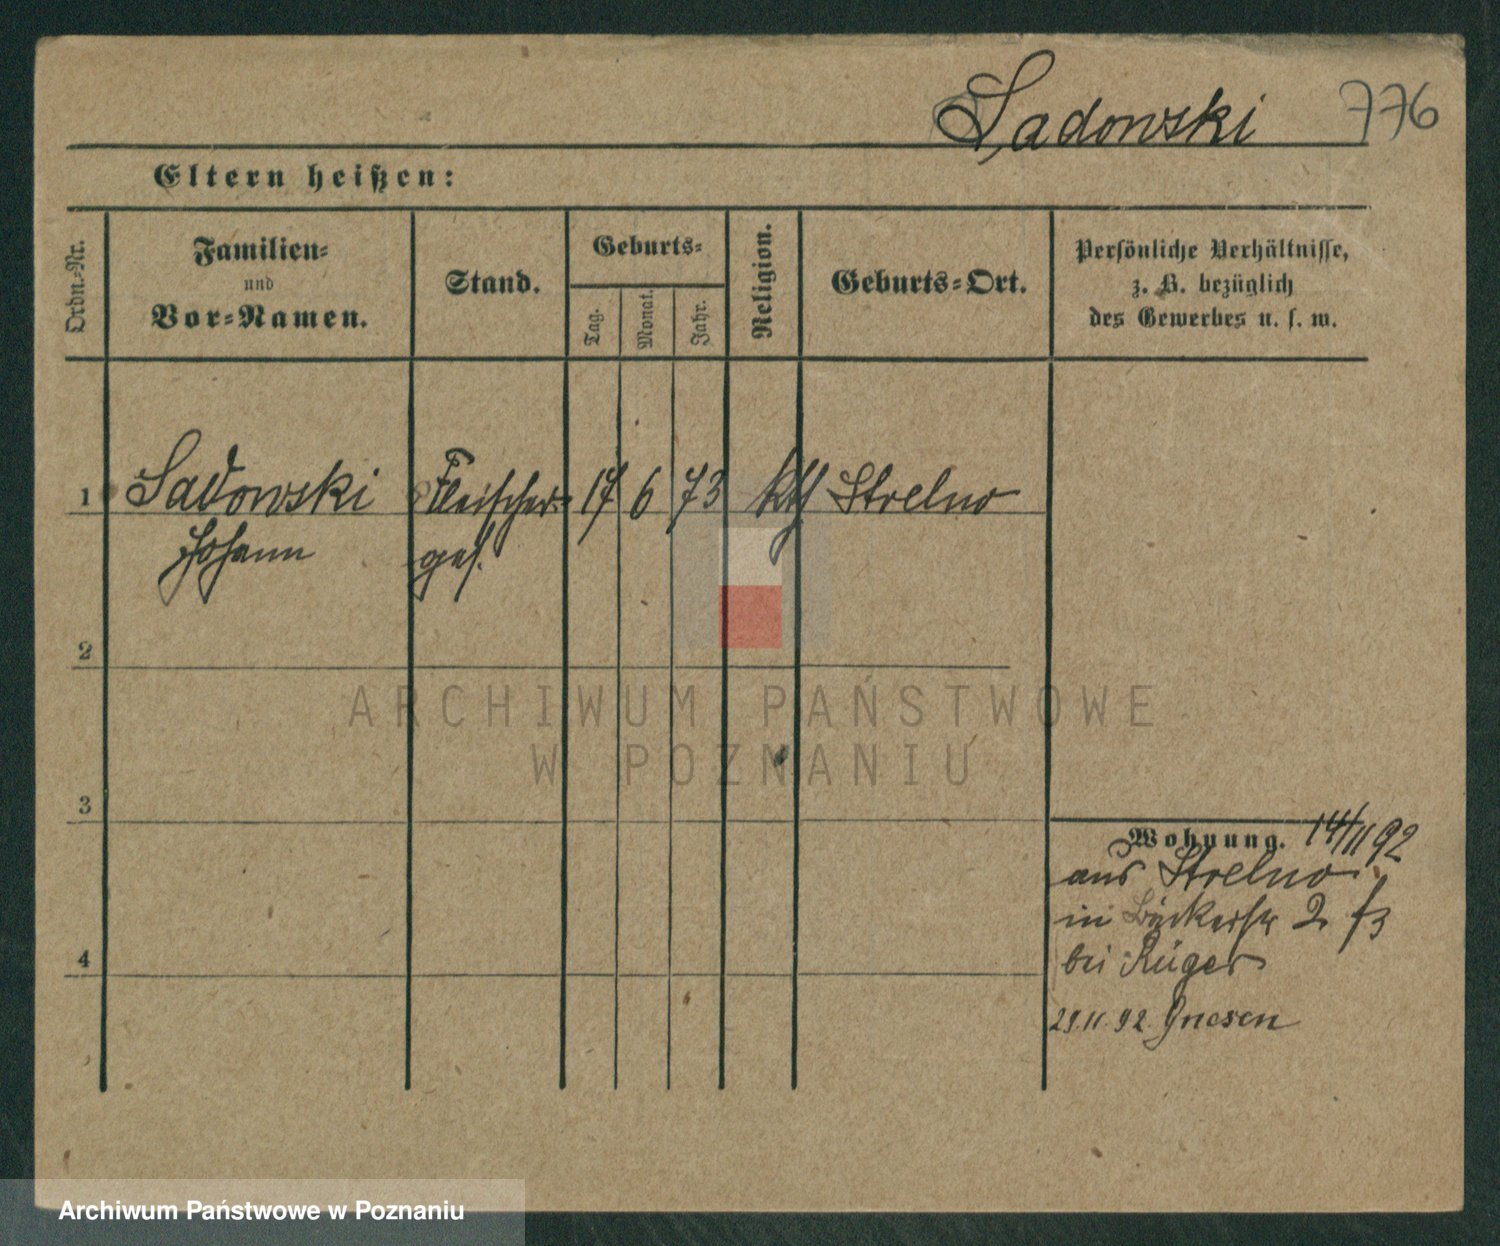 Sadowski 776
Eltern heißen:
Ordn.-Nr.
Familien-
und
Vor-Namen.
Stand.
Geburts-
Tag.
Monat.
Jahr.
Religion.
Geburts-Ort.
Persönliche Verhältnisse,
z. B. bezüglich
des Gewerbes u. s. w.
1 Sadowski Fleischer- 17 6 73 kth Strelno
Johann ges.
2
3
4
Wohnung. 14/11 92
aus Strelno
in Bäckerstr 2
bei Rüger
29.11.92 Gnesen
ARCHIWUM PAŃSTWOWE
W POZNANIU
Archiwum Państwowe w Poznaniu